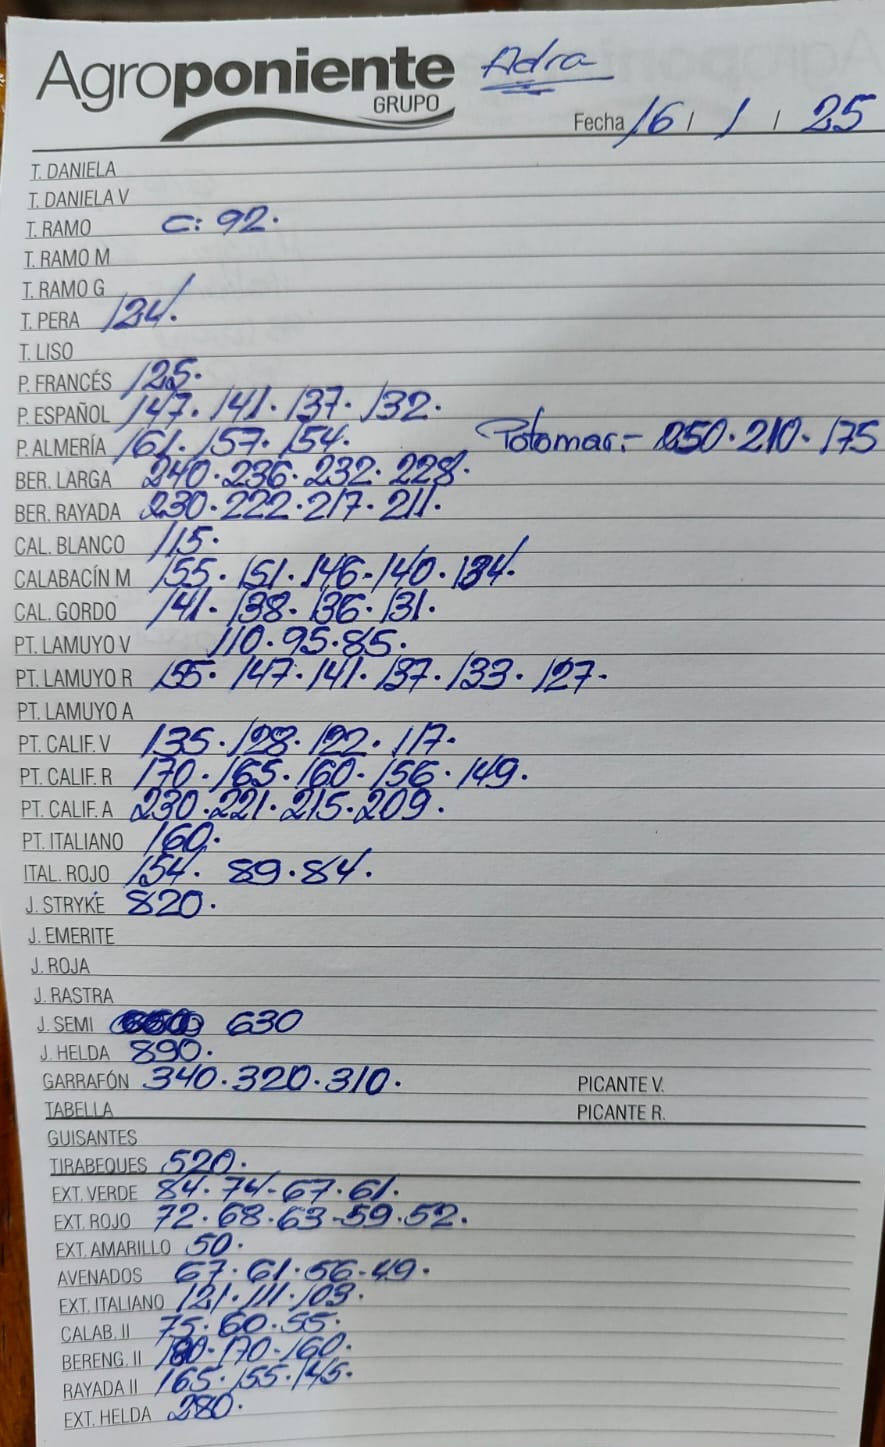 Agroponiente Adra
GRUPO
Fecha 16 / 1 / 25
T. DANIELA
T. DANIELA V
T. RAMO C: 92.
T. RAMO M
T. RAMO G
T. PERA 124.
T. LISO
P. FRANCÉS 125.
P. ESPAÑOL 147. 141. 137. 132.
P. ALMERÍA 161. 157. 154. Potomac:- 250. 210. 175
BER. LARGA 240. 236. 232. 228.
BER. RAYADA 230. 222. 217. 211.
CAL. BLANCO 115.
CALABACÍN M 155. 151. 146- 140. 134.
CAL. GORDO 141. 138. 136. 131.
PT. LAMUYO V 110. 95. 85.
PT. LAMUYO R 155. 147. 141. 137. 133. 127.
PT. LAMUYO A
PT. CALIF. V 135. 128. 122. 117.
PT. CALIF. R 170. 165. 160- 156. 149.
PT. CALIF. A 230. 221. 215. 209.
PT. ITALIANO 160.
ITAL. ROJO 154. 89. 84.
J. STRYKE 820.
J. EMERITE
J. ROJA
J. RASTRA
J. SEMI 630
J. HELDA 890.
GARRAFÓN 340. 320. 310. PICANTE V.
TABELLA PICANTE R.
GUISANTES
TIRABEQUES 520.
EXT. VERDE 84. 74- 67. 61.
EXT. ROJO 72. 68. 63- 59. 52.
EXT. AMARILLO 50.
AVENADOS 67. 61. 56- 49.
EXT. ITALIANO 121. 111. 103.
CALAB. II 75. 60. 55.
BERENG. II 180- 170- 160.
RAYADA II 165. 155. 145.
EXT. HELDA 280.